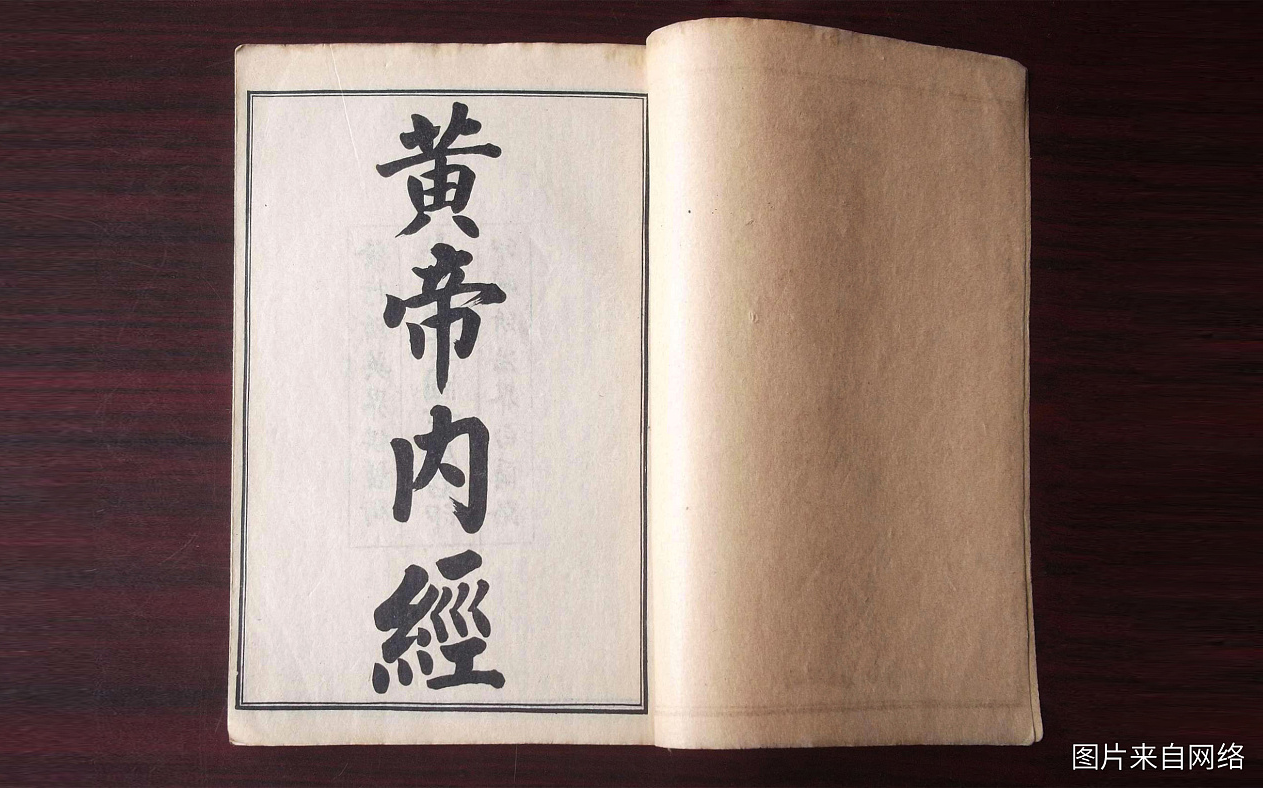 黃帝内經
图片来自网络